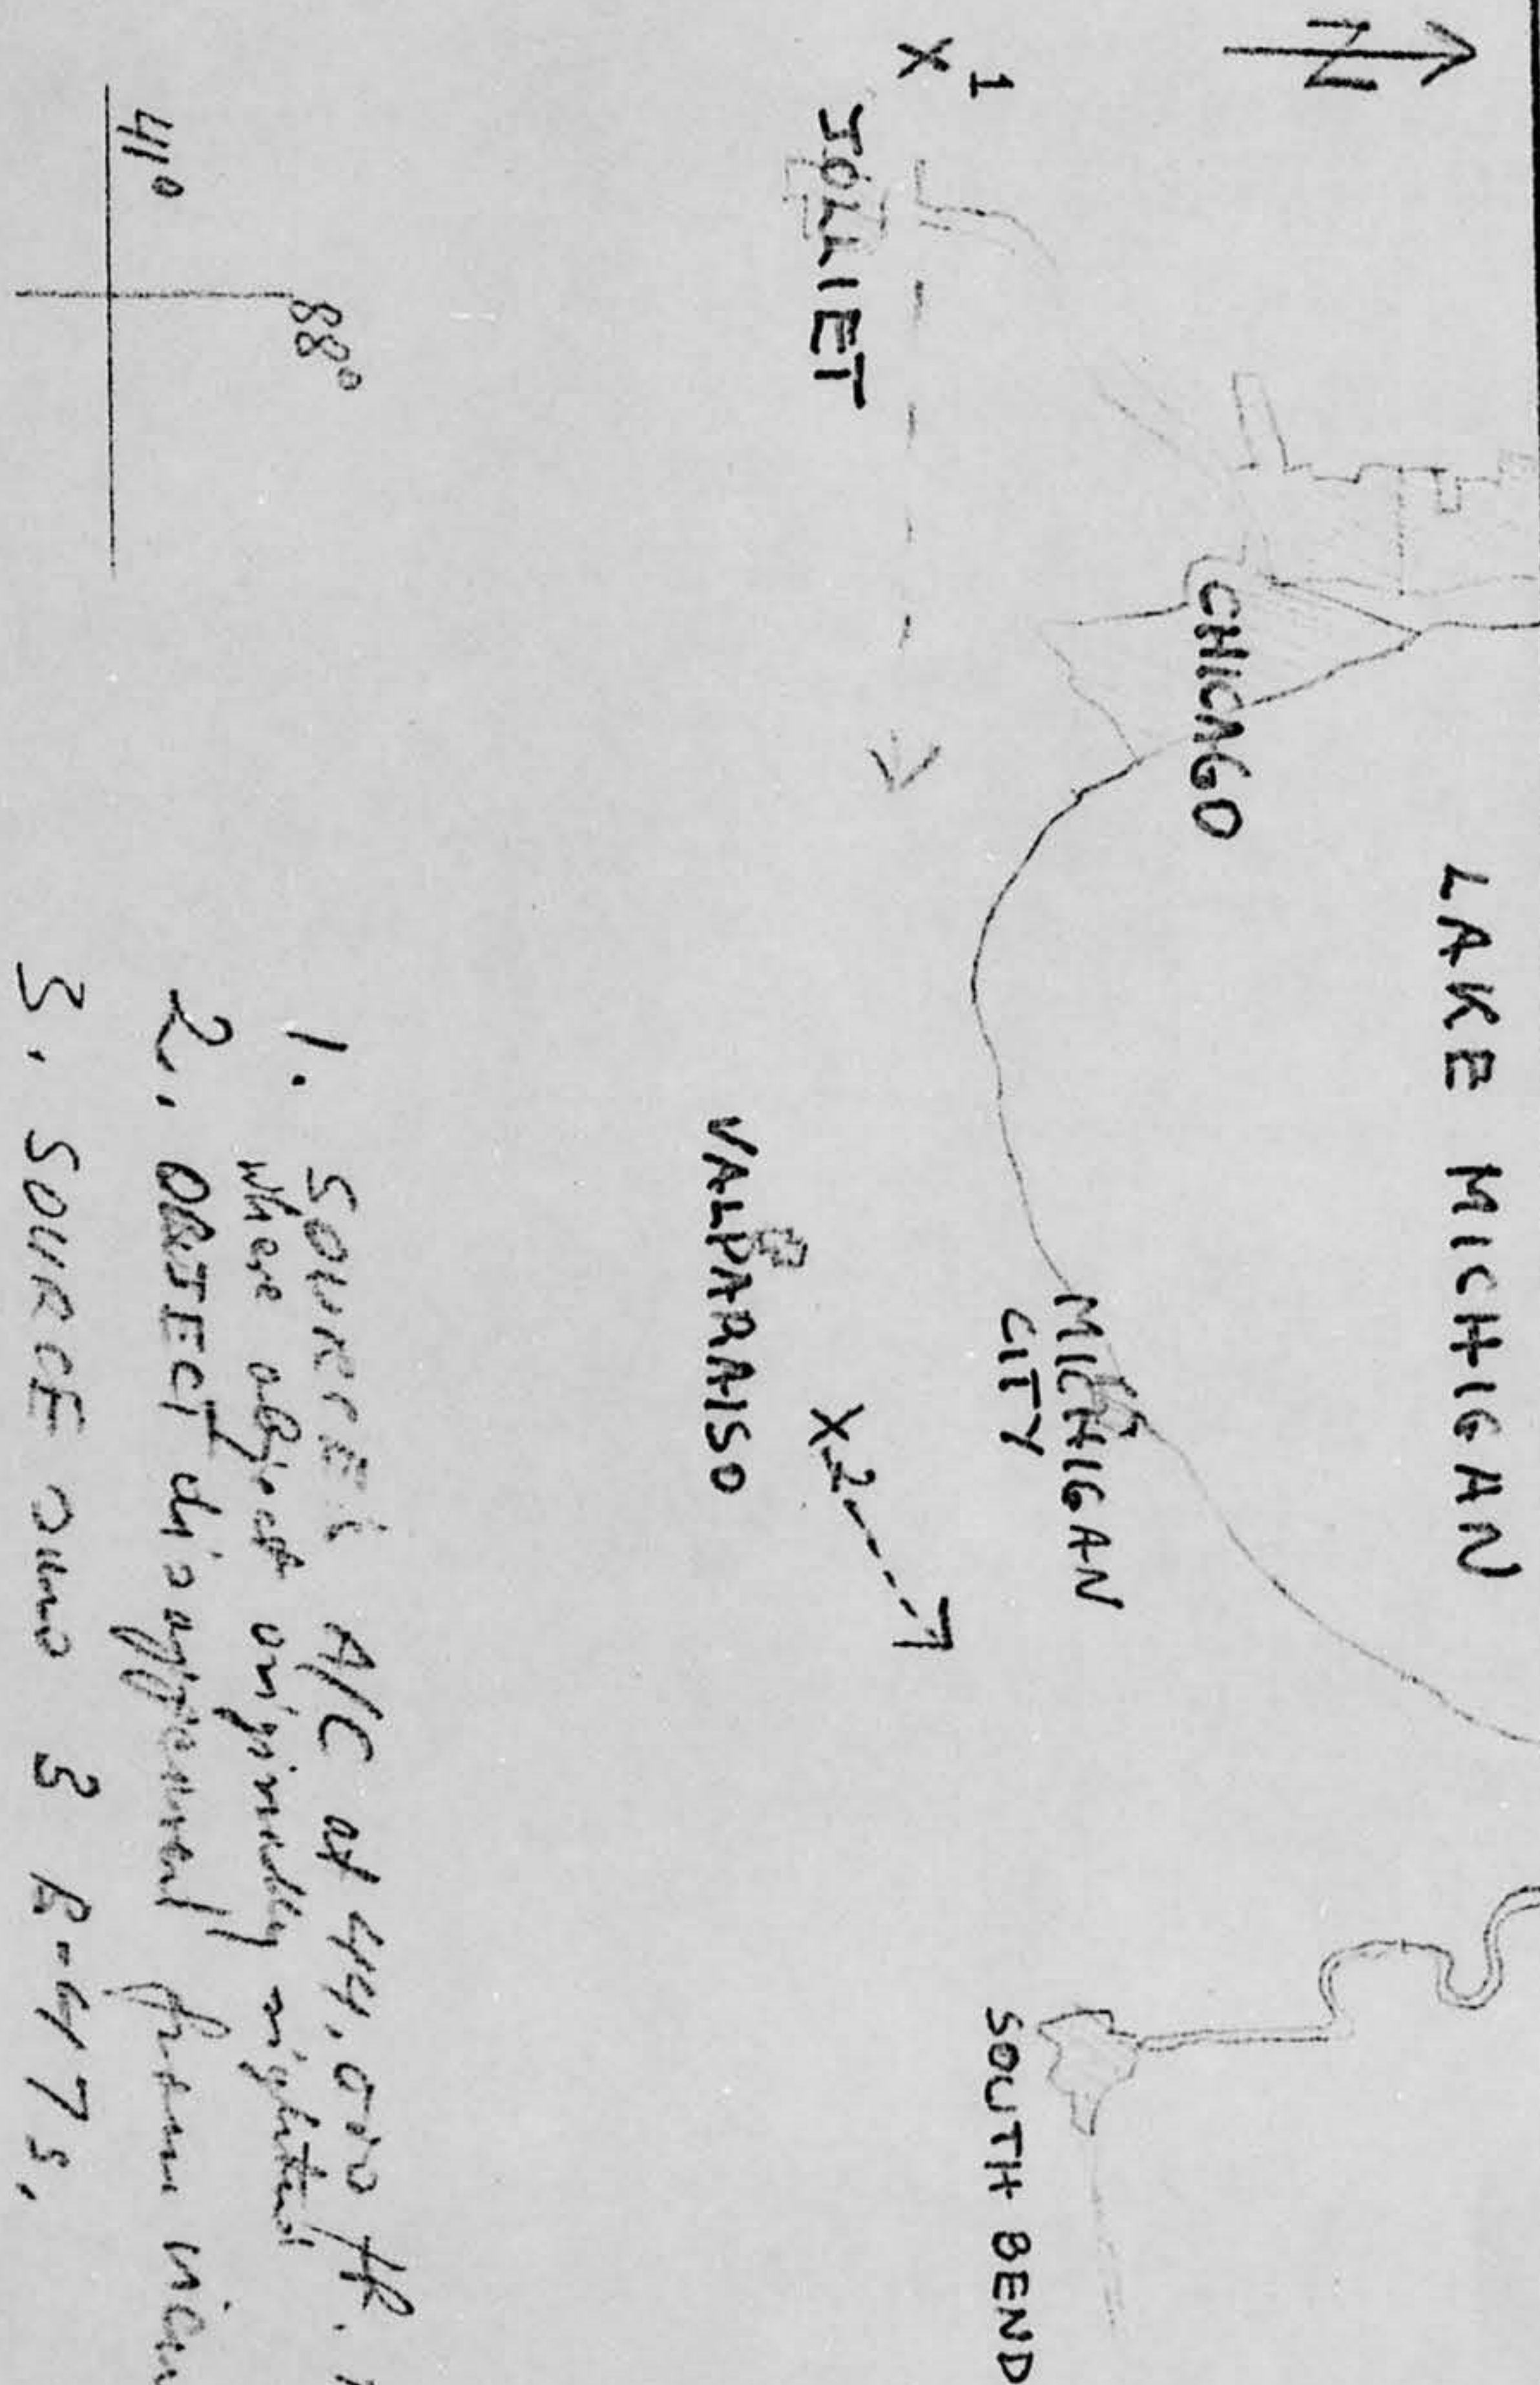 N
LAKE MICHIGAN
CHICAGO
MICHIGAN
CITY
SOUTH BEND
X 1
JOLIET
X 2
VALPARAISO
88°
41°
1. SOURCE'S A/C at 44,000 ft.
where object originally sighted
2. OBJECT disappeared from view
3. SOURCE 3 B-47s.